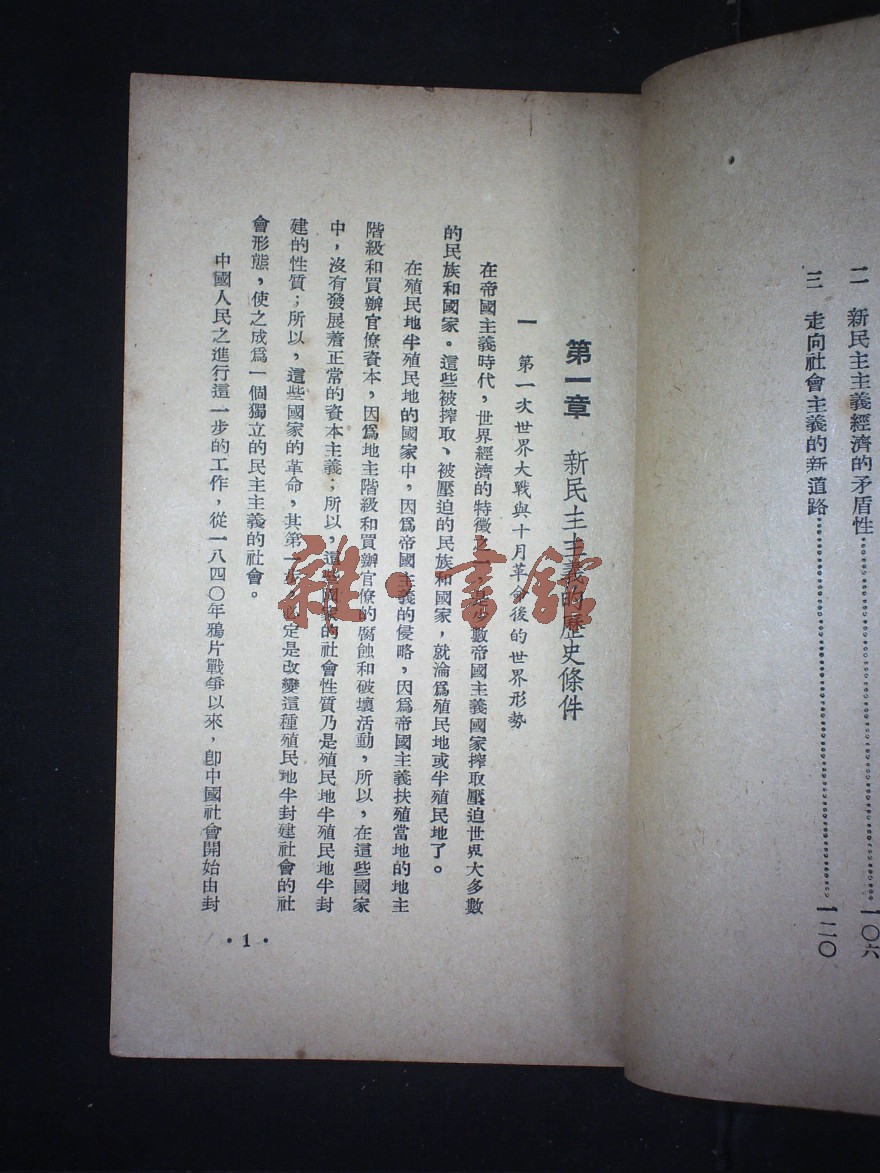 二　新民主主義經濟的矛盾性……一〇六
三　走向社會主義的新道路……一二〇
第一章　新民主主義的歷史條件
一　第一次世界大戰與十月革命後的世界形勢
在帝國主義時代，世界經濟的特徵之一，是少數帝國主義國家搾取壓迫世界大多數
的民族和國家。這些被搾取、被壓迫的民族和國家，就淪爲殖民地或半殖民地了。
在殖民地半殖民地的國家中，因爲帝國主義的侵略，因爲帝國主義扶殖當地的地主
階級和買辦官僚資本，因爲地主階級和買辦官僚的腐蝕和破壞活動，所以，在這些國家
中，沒有發展着正常的資本主義；所以，這些國家的社會性質乃是殖民地半殖民地半封
建的性質；所以，這些國家的革命，其第一步，必定是改變這種殖民地半封建社會的社
會形態，使之成爲一個獨立的民主主義的社會。
中國人民之進行這一步的工作，從一八四〇年鴉片戰爭以來，卽中國社會開始由封
·1·
雜·書館